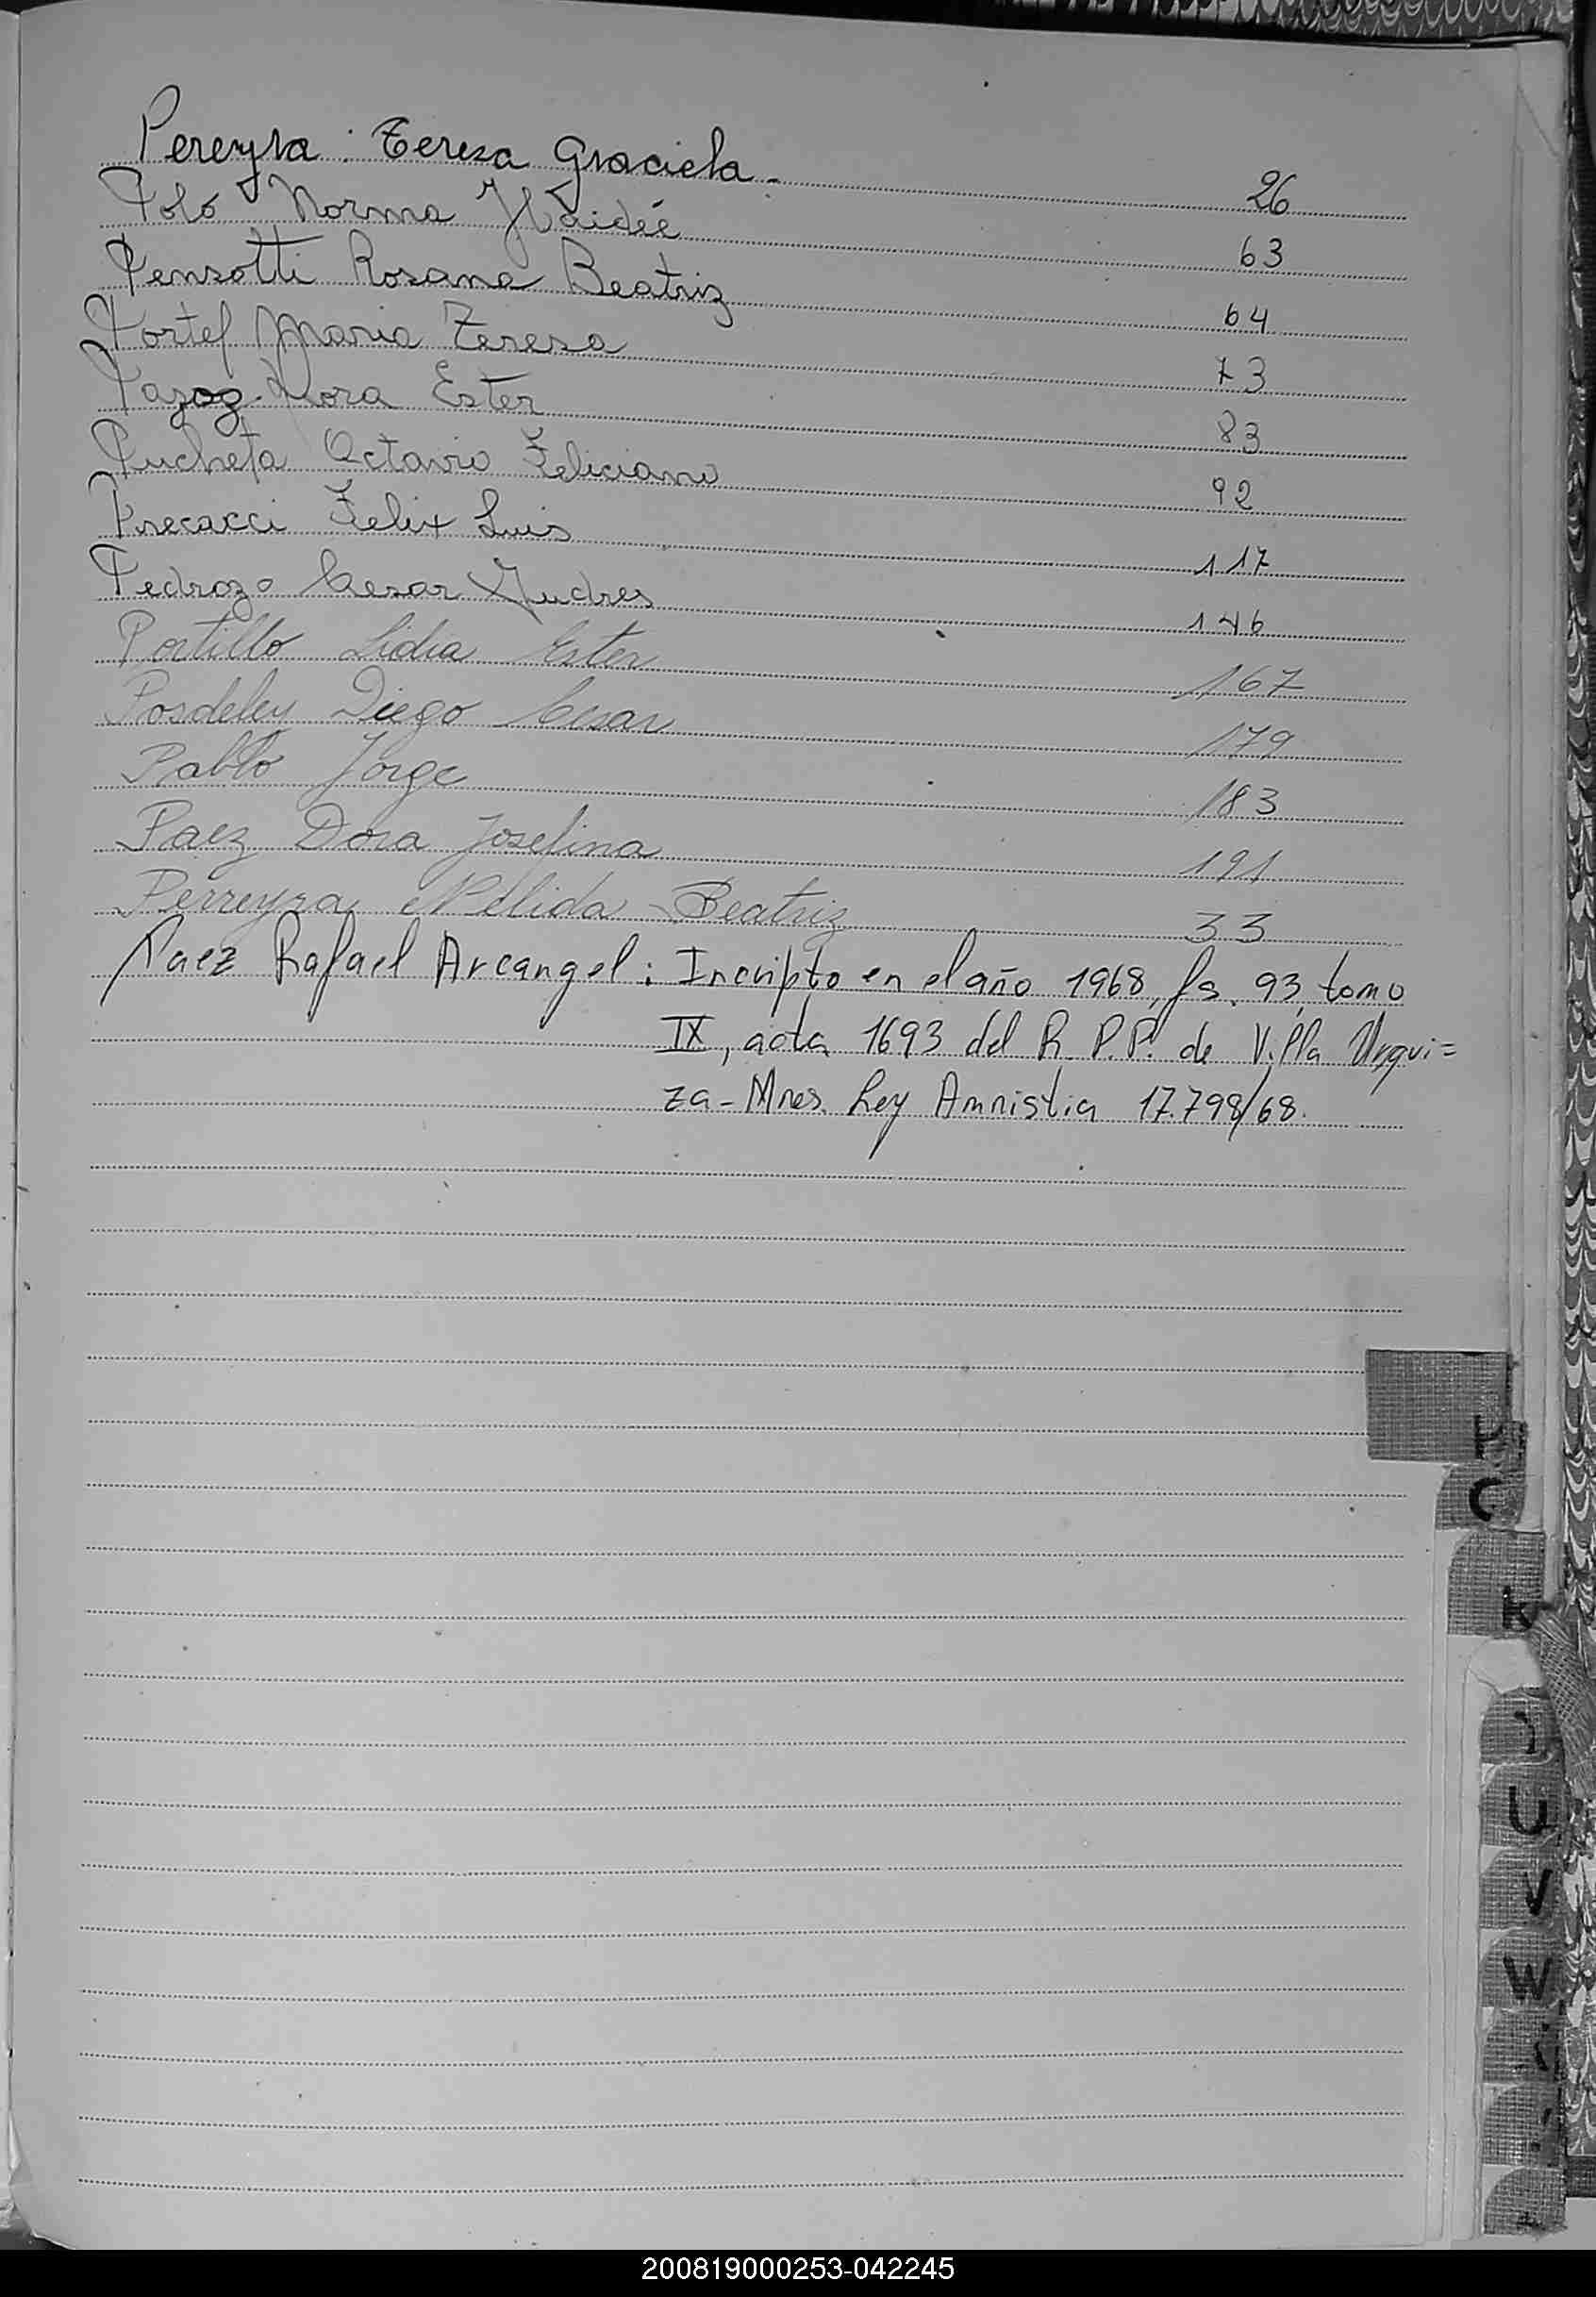 Pereyra : Teresa Graciela. 26
Polo Norma Haideé 63
Pensotti Rosana Beatriz 64
Portel Maria Teresa 73
Nora Ester 83
Pucheta Octavio Feliciano 92
Precacci Felix Luis 117
Pedrozo Cesar Andres 146
Portillo Lidia Ester 167
Posdeley Diego Cesar 179
Pablo Jorge 183
Paez Dora Josefina 191
Perreyra Nelida Beatriz 33
Paez Rafael Arcangel: Incripto en el año 1968, fs. 93, tomo
IX, acta 1693 del R.P.P. de Villa Urqui=
za - Mnes. Ley Amnistia 17.798/68.
P
C
K
U
V
W
200819000253-042245